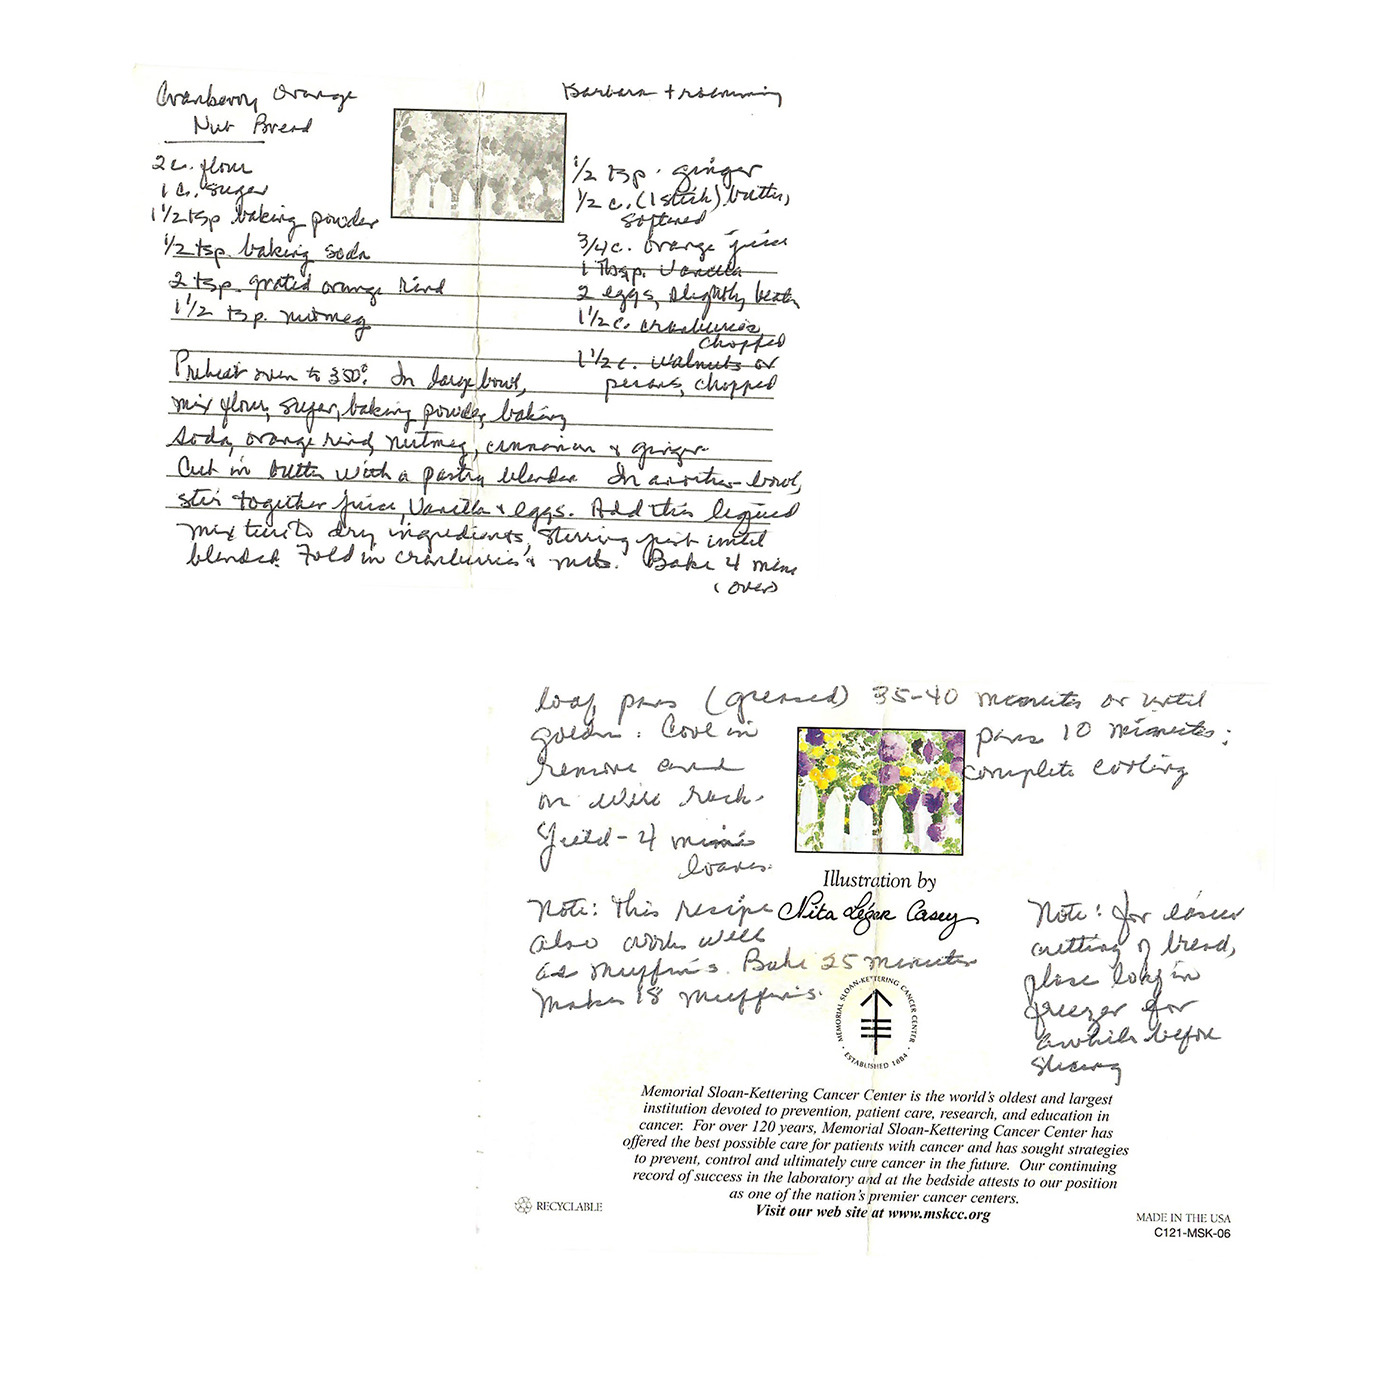 Cranberry Orange
Nut Bread
Barbara
2 c. flour
1 c. sugar
1 1/2 tsp baking powder
1/2 tsp. baking soda
2 tsp. grated orange rind
1 1/2 tsp. nutmeg
1/2 tsp. ginger
1/2 c. (1 stick) butter,
softened
3/4 c. orange juice
1 Tbsp. Vanilla
2 eggs, slightly beaten
1 1/2 c. cranberries
chopped
1 1/2 c. walnuts or
pecans, chopped
Preheat oven to 350°. In large bowl,
mix flour, sugar, baking powder, baking
soda, orange rind, nutmeg, cinnamon & ginger.
Cut in butter with a pastry blender In another bowl,
stir together juice, Vanilla & eggs. Add this liquid
mixture to dry ingredients, stirring just until
blended. Fold in cranberries & nuts. Bake 4 mini
(over)
loaf pans (greased) 35-40 minutes or until
golden. Cool in pans 10 minutes;
remove and complete cooling
on wire rack.
Yield - 4 mini
loaves.
Illustration by
Nita Léger Casey
Note: This recipe
also works well
as muffins. Bake 25 minutes
Makes 18 muffins.
Note: for easier
cutting of bread,
place loaf in
freezer for
awhile before
slicing
MEMORIAL SLOAN-KETTERING CANCER CENTER
· ESTABLISHED 1884 ·
Memorial Sloan-Kettering Cancer Center is the world's oldest and largest
institution devoted to prevention, patient care, research, and education in
cancer. For over 120 years, Memorial Sloan-Kettering Cancer Center has
offered the best possible care for patients with cancer and has sought strategies
to prevent, control and ultimately cure cancer in the future. Our continuing
record of success in the laboratory and at the bedside attests to our position
as one of the nation's premier cancer centers.
Visit our web site at www.mskcc.org
RECYCLABLE
MADE IN THE USA
C121-MSK-06